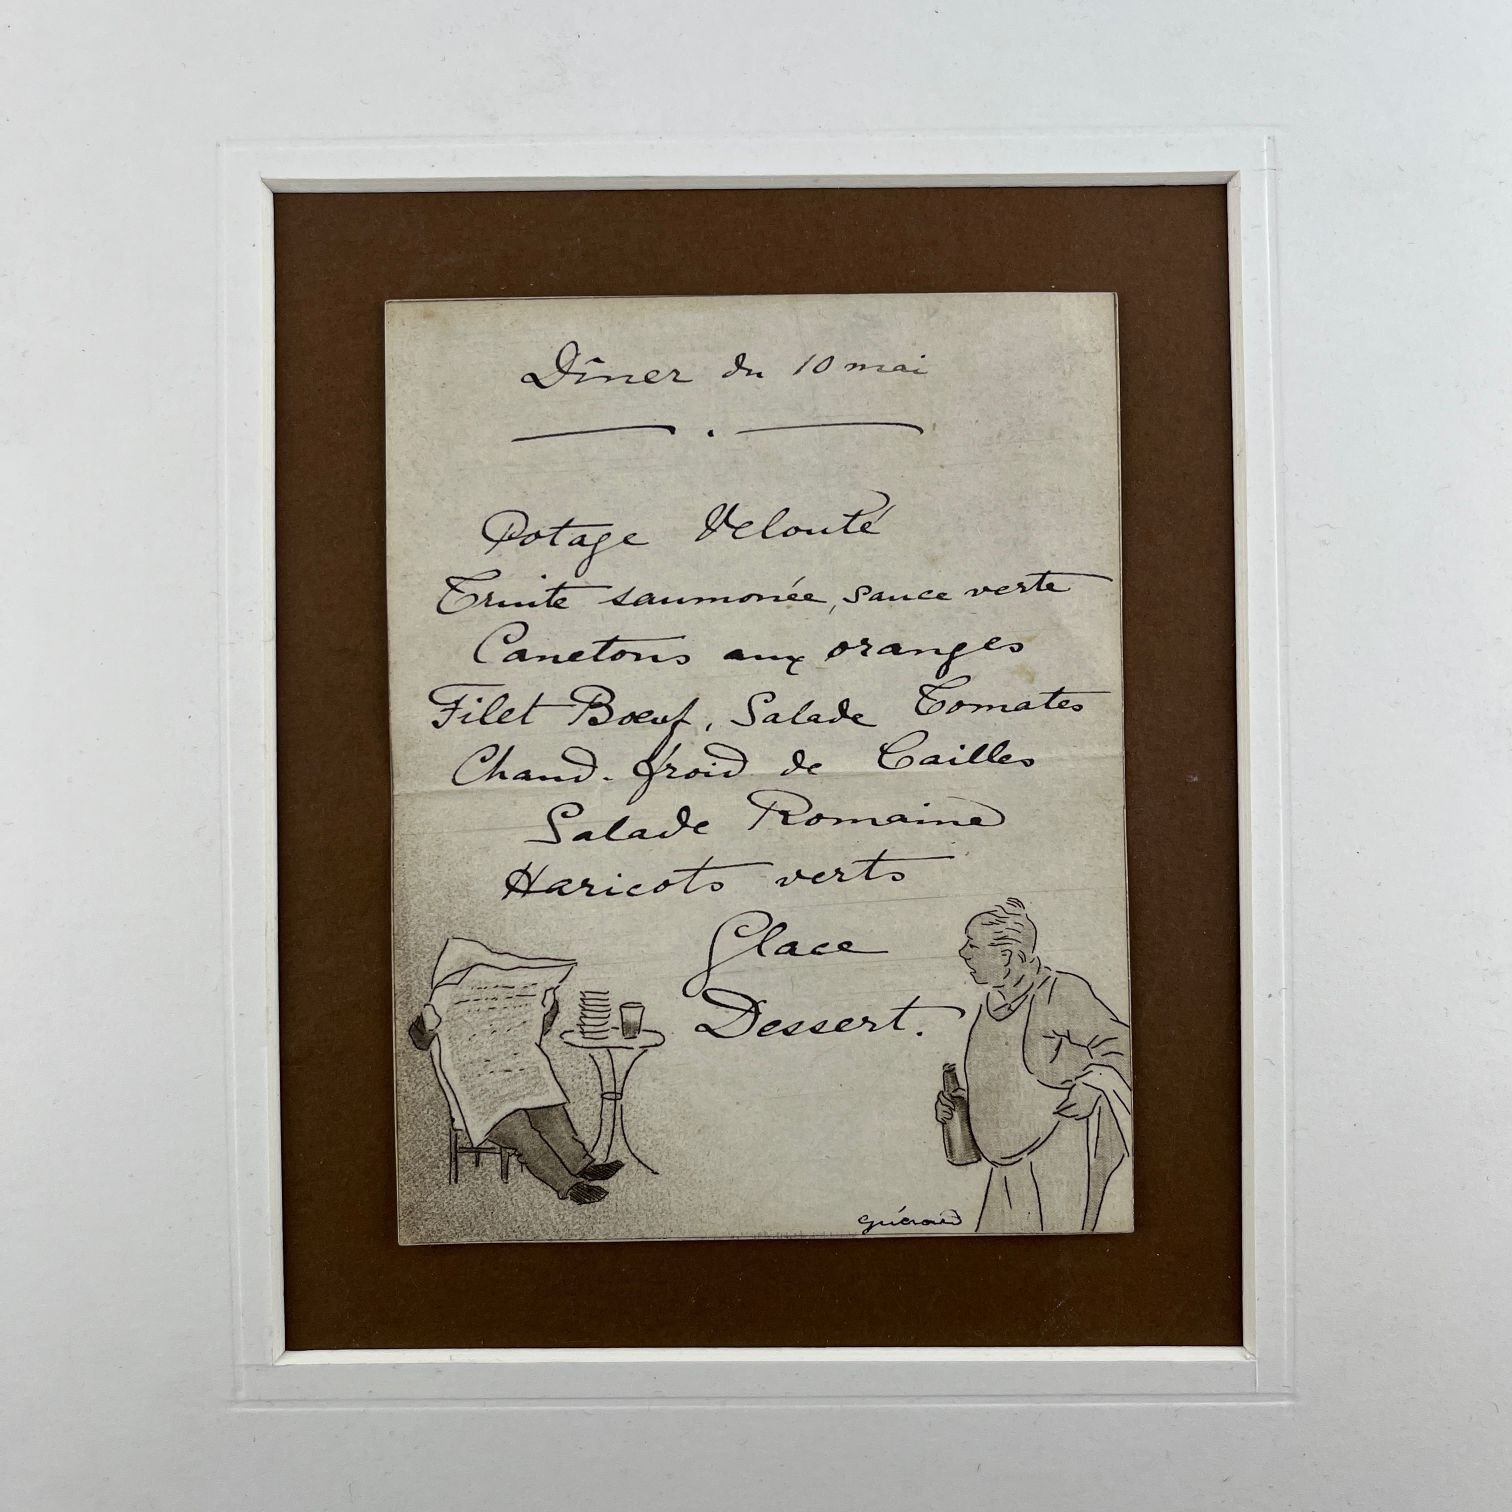 Dîner du 10 mai
Potage Velouté
Truite saumonée, sauce verte
Canetons aux oranges
Filet Bœuf, Salade Tomates
Chaud-froid de Cailles
Salade Romaine
Haricots verts
Glace
Dessert.